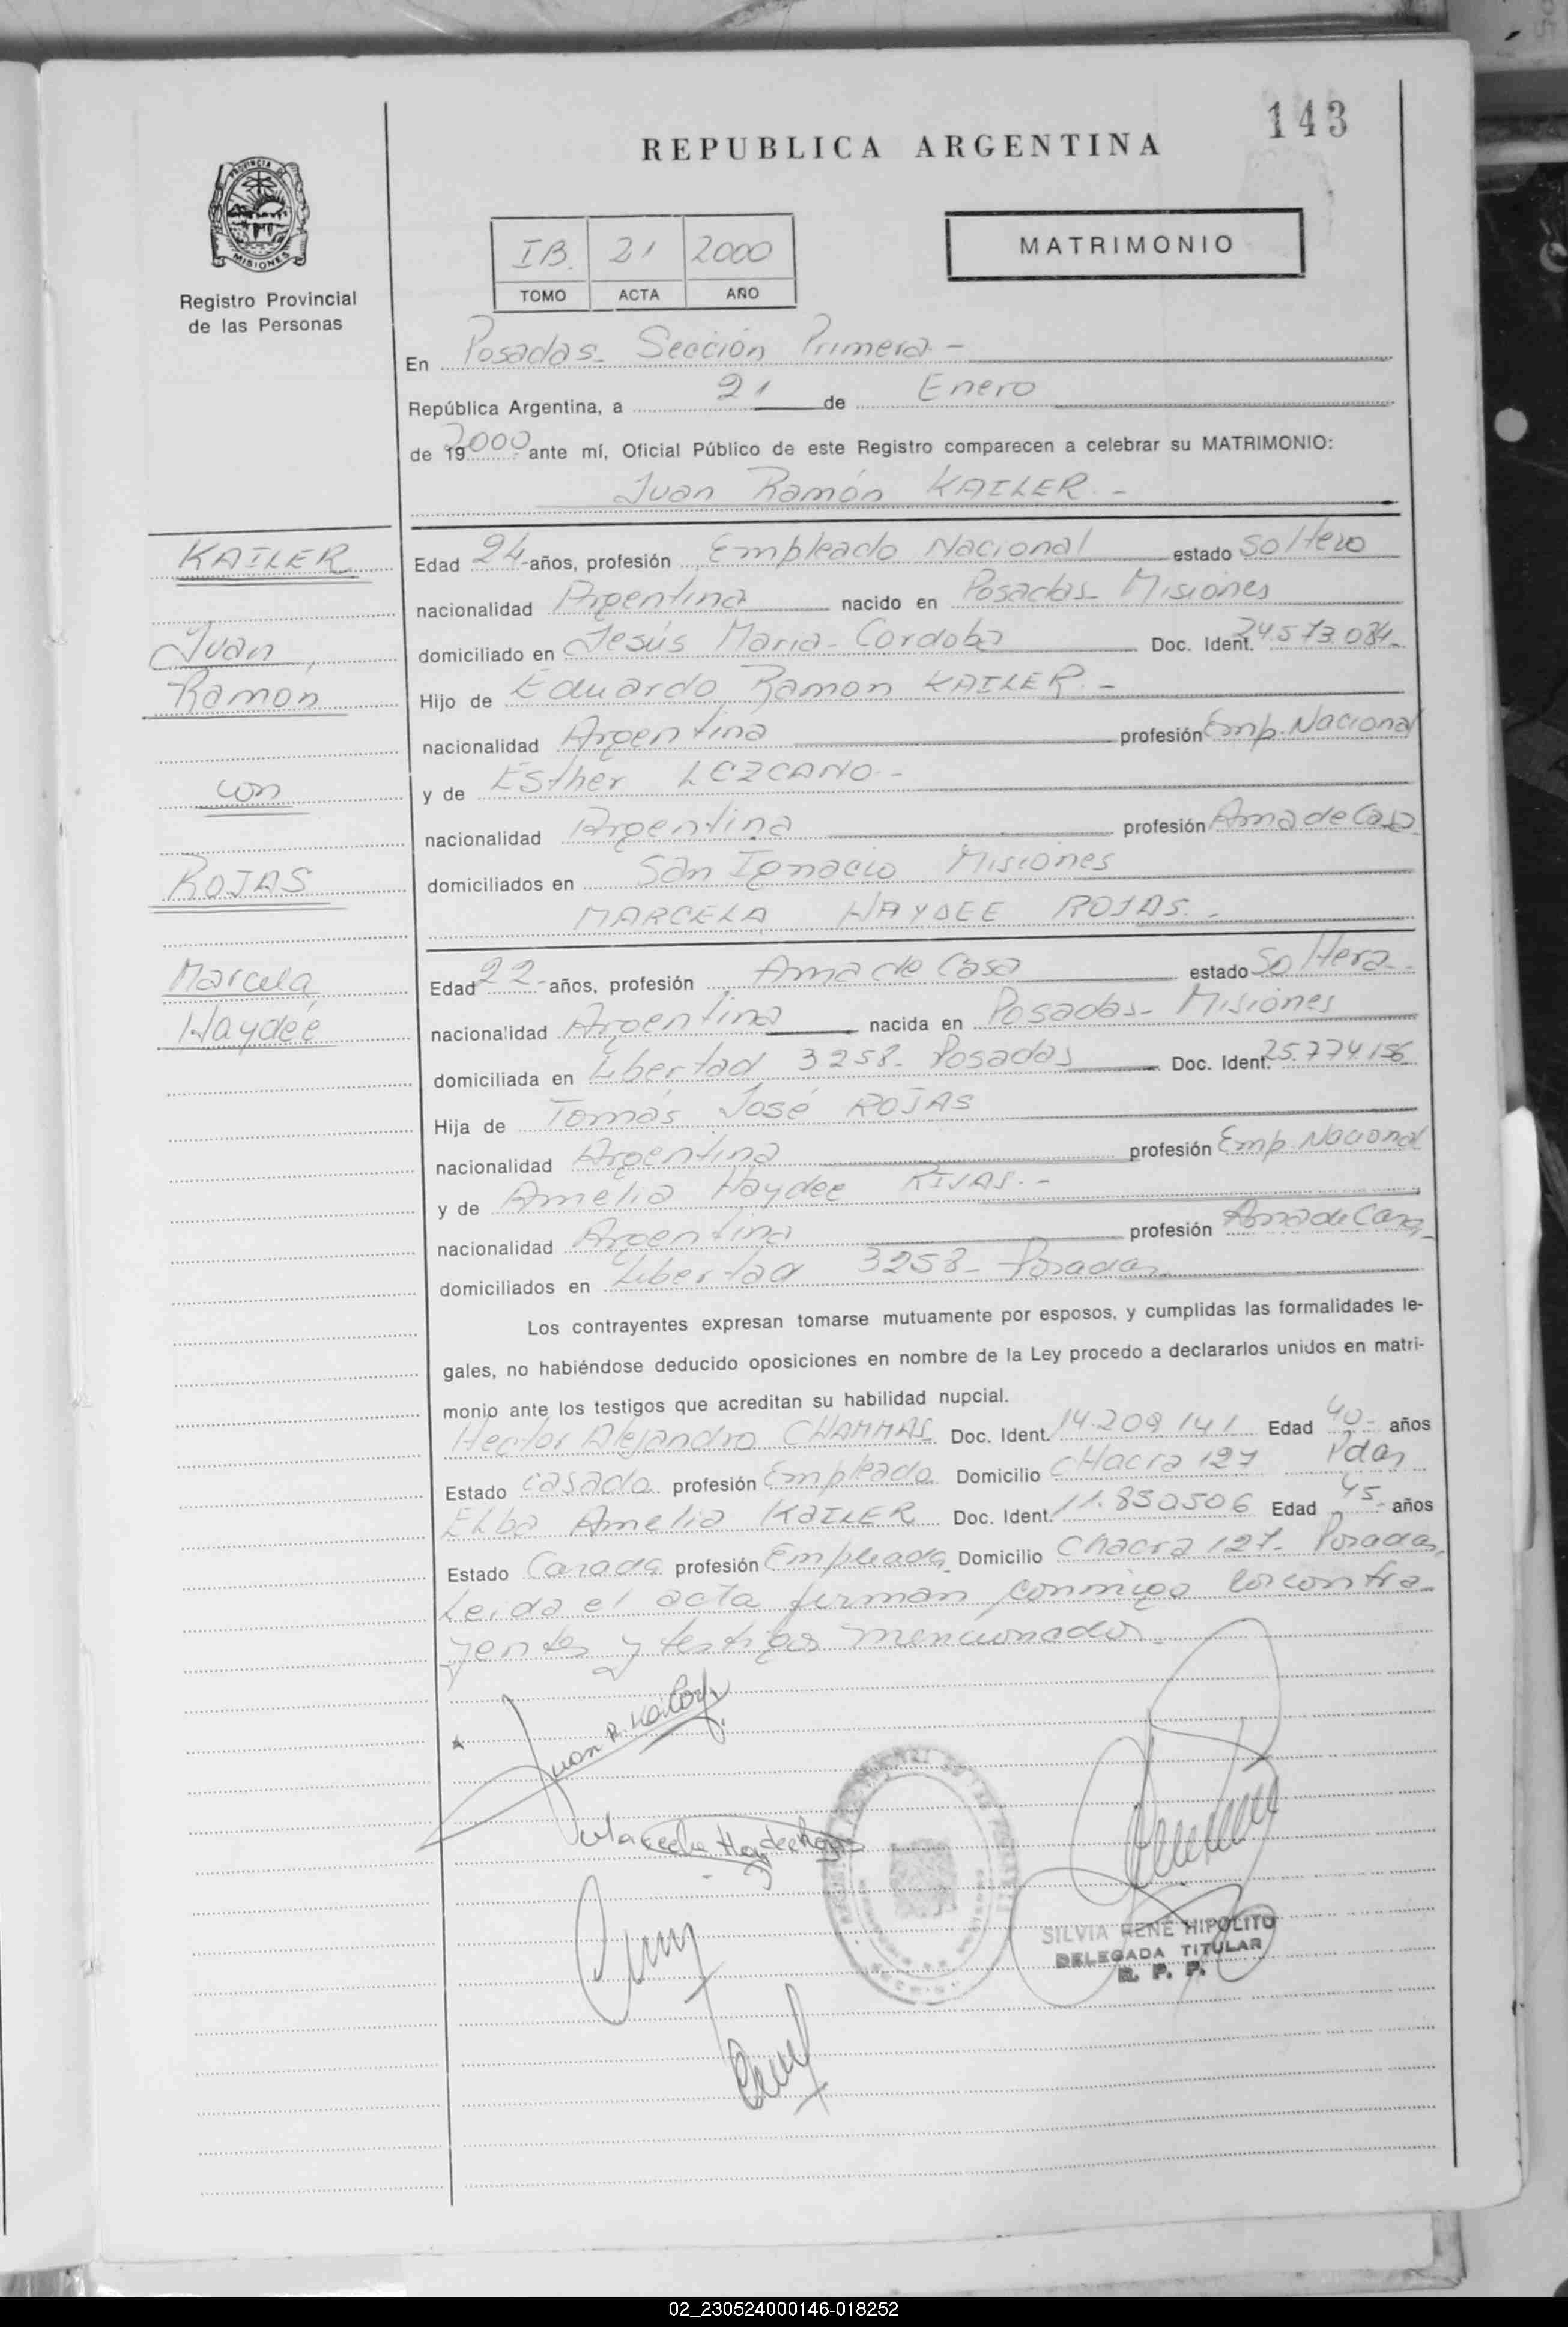 143
REPUBLICA ARGENTINA
PROVINCIA DE
MISIONES
Registro Provincial
de las Personas
IB. 21 2000
TOMO ACTA AÑO
MATRIMONIO
En Posadas- Sección Primera -
República Argentina, a 21 de Enero
de 192000 ante mí, Oficial Público de este Registro comparecen a celebrar su MATRIMONIO:
Juan Ramón KAILER. -
KAILER
Juan,
Ramon
con
ROJAS
Marcela
Haydeé
Edad 24 años, profesión Empleado Nacional estado soltero
nacionalidad Argentina nacido en Posadas- Misiones
domiciliado en Jesús Maria- Cordoba Doc. Ident. 24.573.084-
Hijo de Eduardo Ramon KAILER. -
nacionalidad Argentina profesión Emp. Nacional
y de Esther LEZCANO. -
nacionalidad Argentina profesión Ama de Casa
domiciliados en San Ignacio Misiones
MARCELA HAYDEE ROJAS. -
Edad 22- años, profesión Ama de Casa estado Soltera-
nacionalidad Argentina nacida en Posadas- Misiones
domiciliada en Libertad 3258- Posadas Doc. Ident. 25.774.156
Hija de Tomás José ROJAS
nacionalidad Argentina profesión Emp. Nacional
y de Amelia Haydee RIVAS. -
nacionalidad Argentina profesión Ama de Casa
domiciliados en Libertad 3258- Posadas
Los contrayentes expresan tomarse mutuamente por esposos, y cumplidas las formalidades le-
gales, no habiéndose deducido oposiciones en nombre de la Ley procedo a declararlos unidos en matri-
monio ante los testigos que acreditan su habilidad nupcial.
Hector Alejandro CHAMMAS Doc. Ident. 14.209.141 Edad 40- años
Estado casado profesión Empleado Domicilio CHacra 127 Pdas
Elba Amelia KAILER Doc. Ident. 11.850506 Edad 45- años
Estado Casada profesión Empleada Domicilio Chacra 127- Posadas
Leida el acta firman conmigo los contra-
yentes y testigos mencionados.
Juan R. Kailer
Marcela Haydee Rojas
SILVIA RENÉ HIPOLITO
DELEGADA TITULAR
R. P. P.
02_230524000146-018252